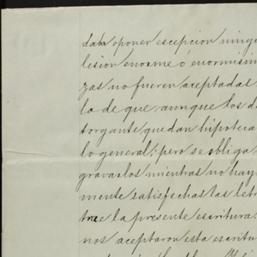 dan oponer escepcion ningu
lesion enorme ó enormisim
zas no fueren aceptadas
la de que, aunque los d
torgante quedan hipoteca
lo general; pero se obliga
gravarlos mientras no hay
mente satisfechas las letr
tre la presente escritura
nos aceptaron esta escritu